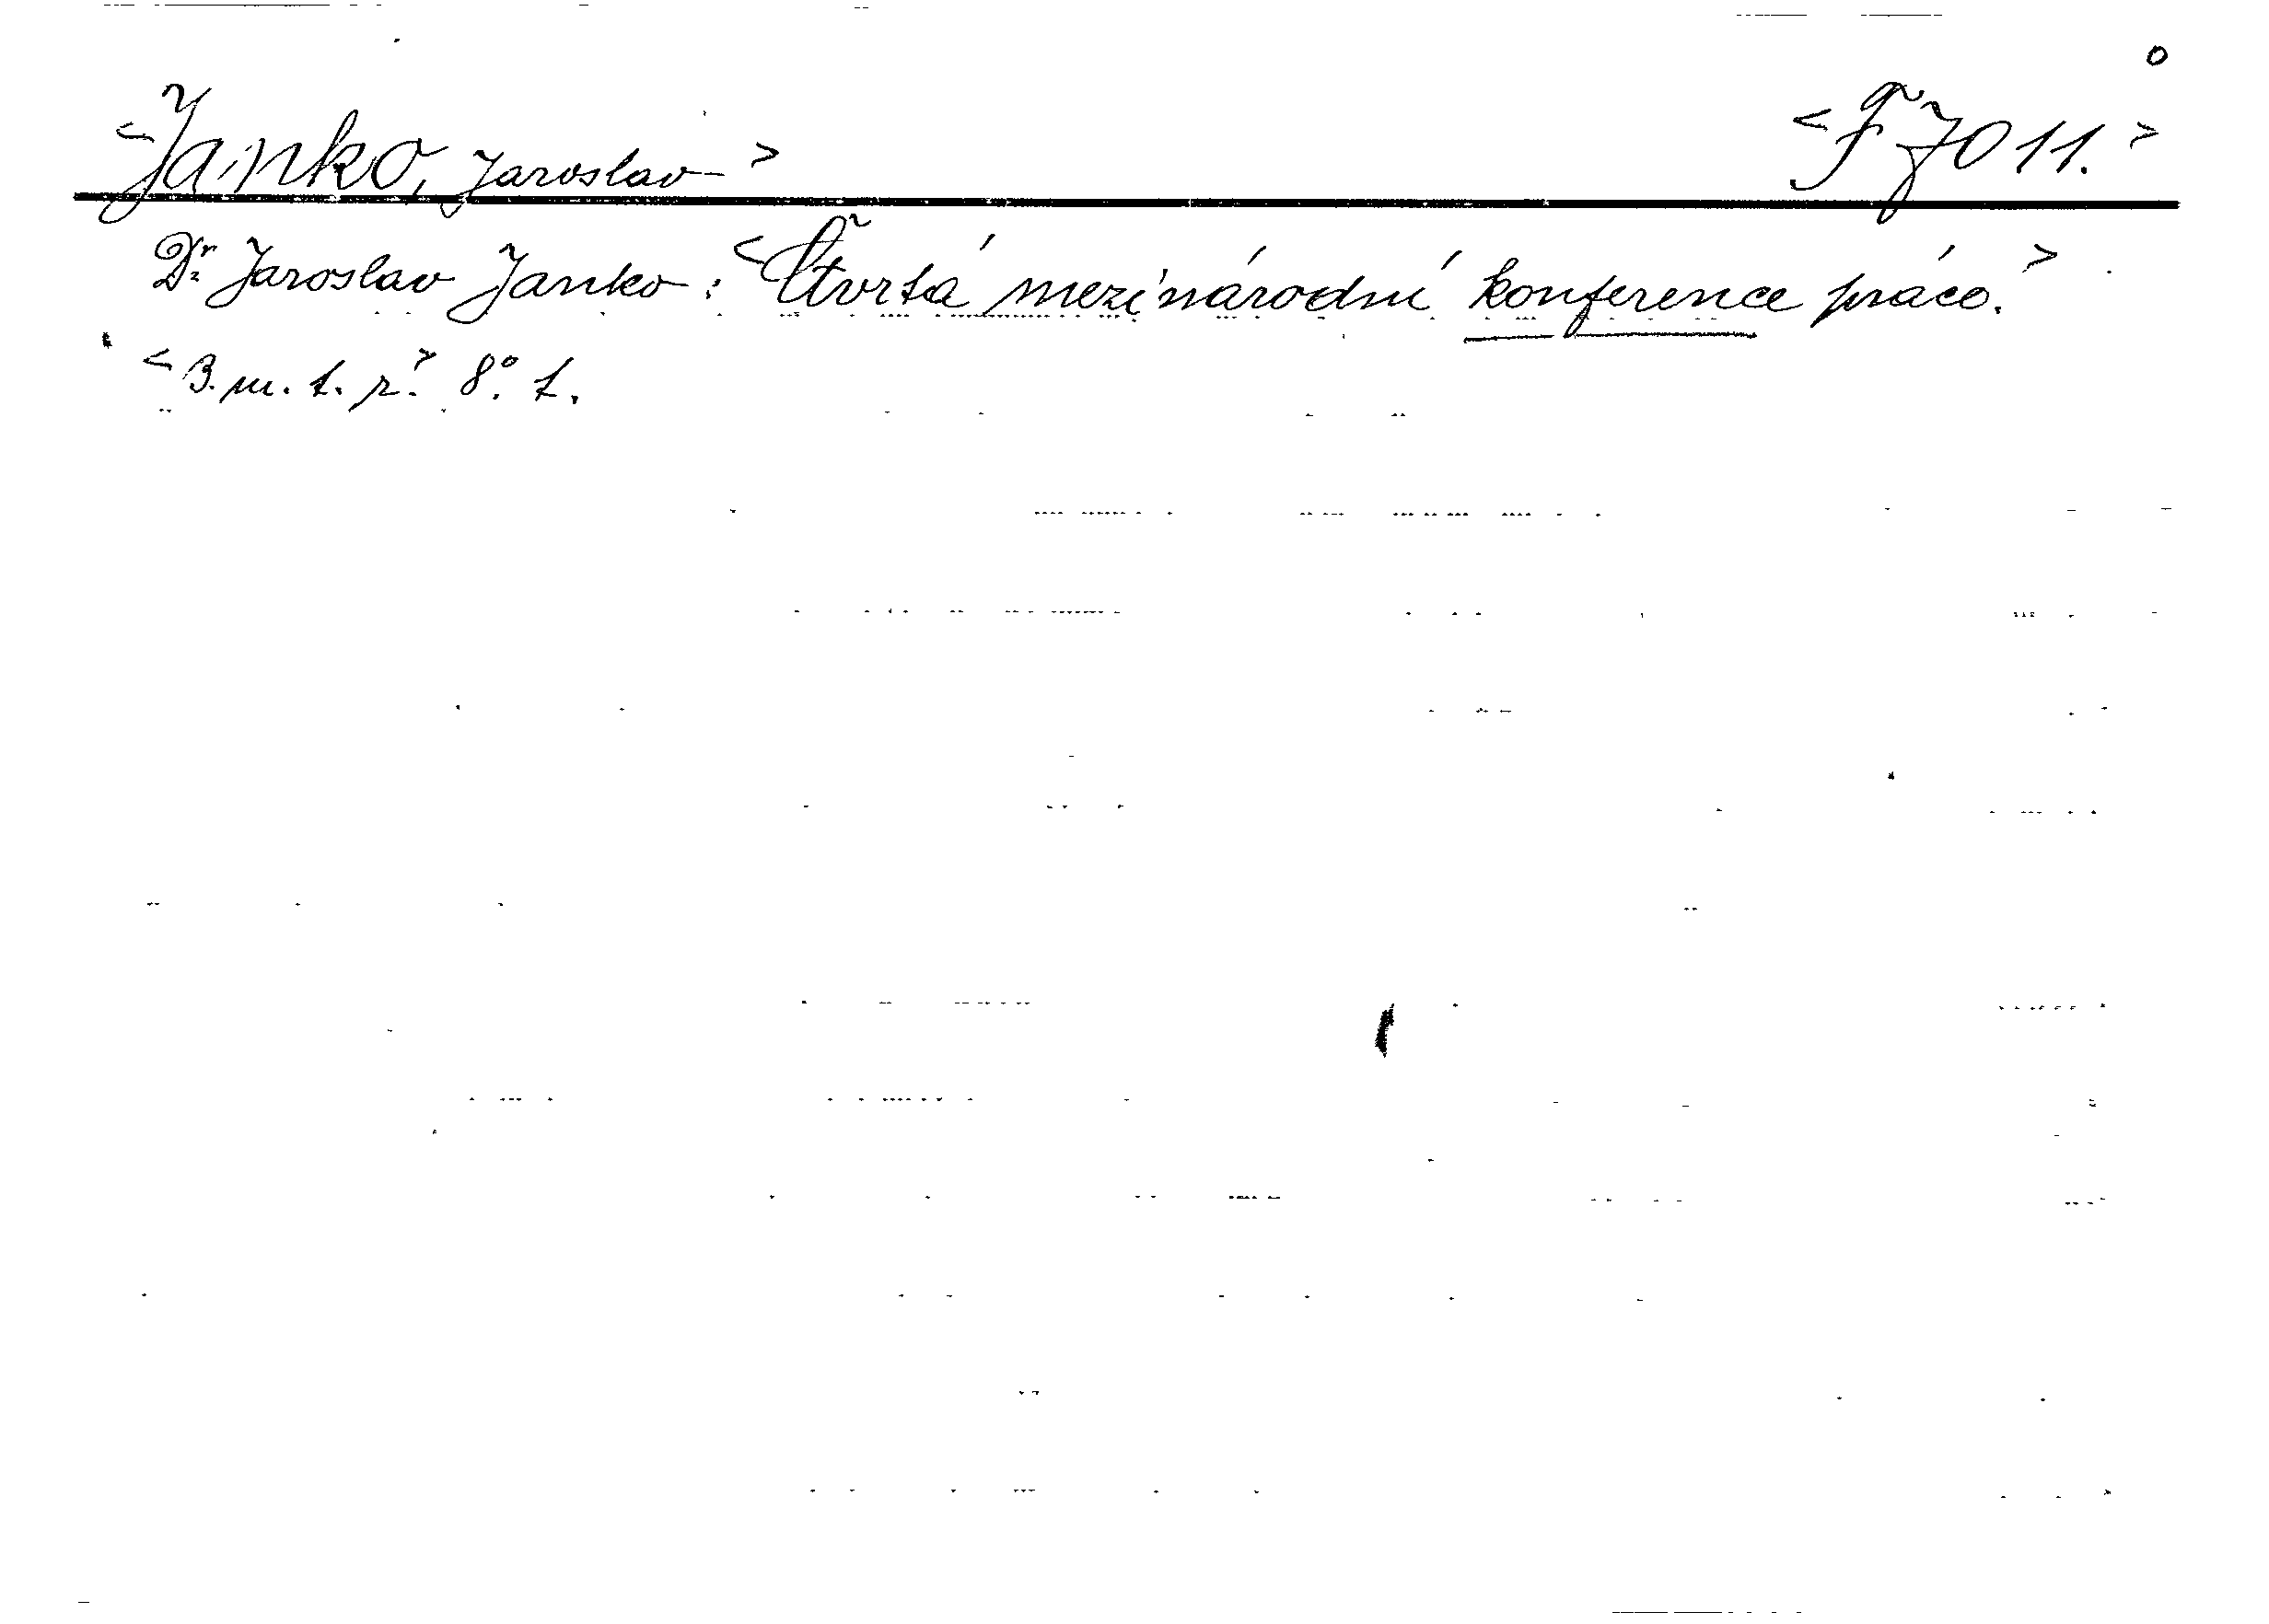 <Janko, Jaroslav> <F 7011.>
Dr. Jaroslav Janko: <Čtvrtá mezinárodní konference práce.>
<B. m. t. r.> 8°. t.